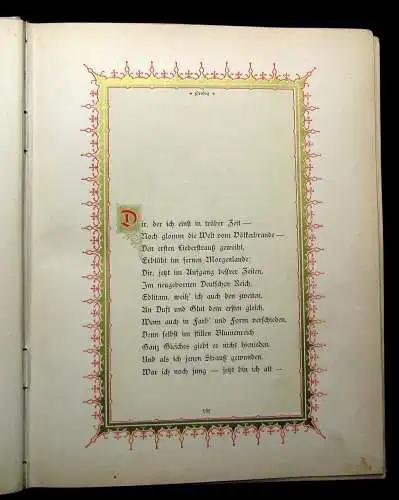 Prolog
Dir, der ich einst in trüber Zeit —
Noch glomm die Welt vom Völkerbrande —
Den ersten Liederstrauß geweiht,
Erblüht im fernen Morgenlande:
Dir, jetzt im Aufgang bessrer Zeiten,
Im neugebornen Deutschen Reich,
Edlitam, weih' ich auch den zweiten,
An Duft und Glut dem ersten gleich,
Wenn auch in Farb' und Form verschieden,
Denn selbst im stillen Blumenreich
Ganz Gleiches giebt es nicht hienieden.
Und als ich jenen Strauß gewunden,
War ich noch jung — jetzt bin ich alt —